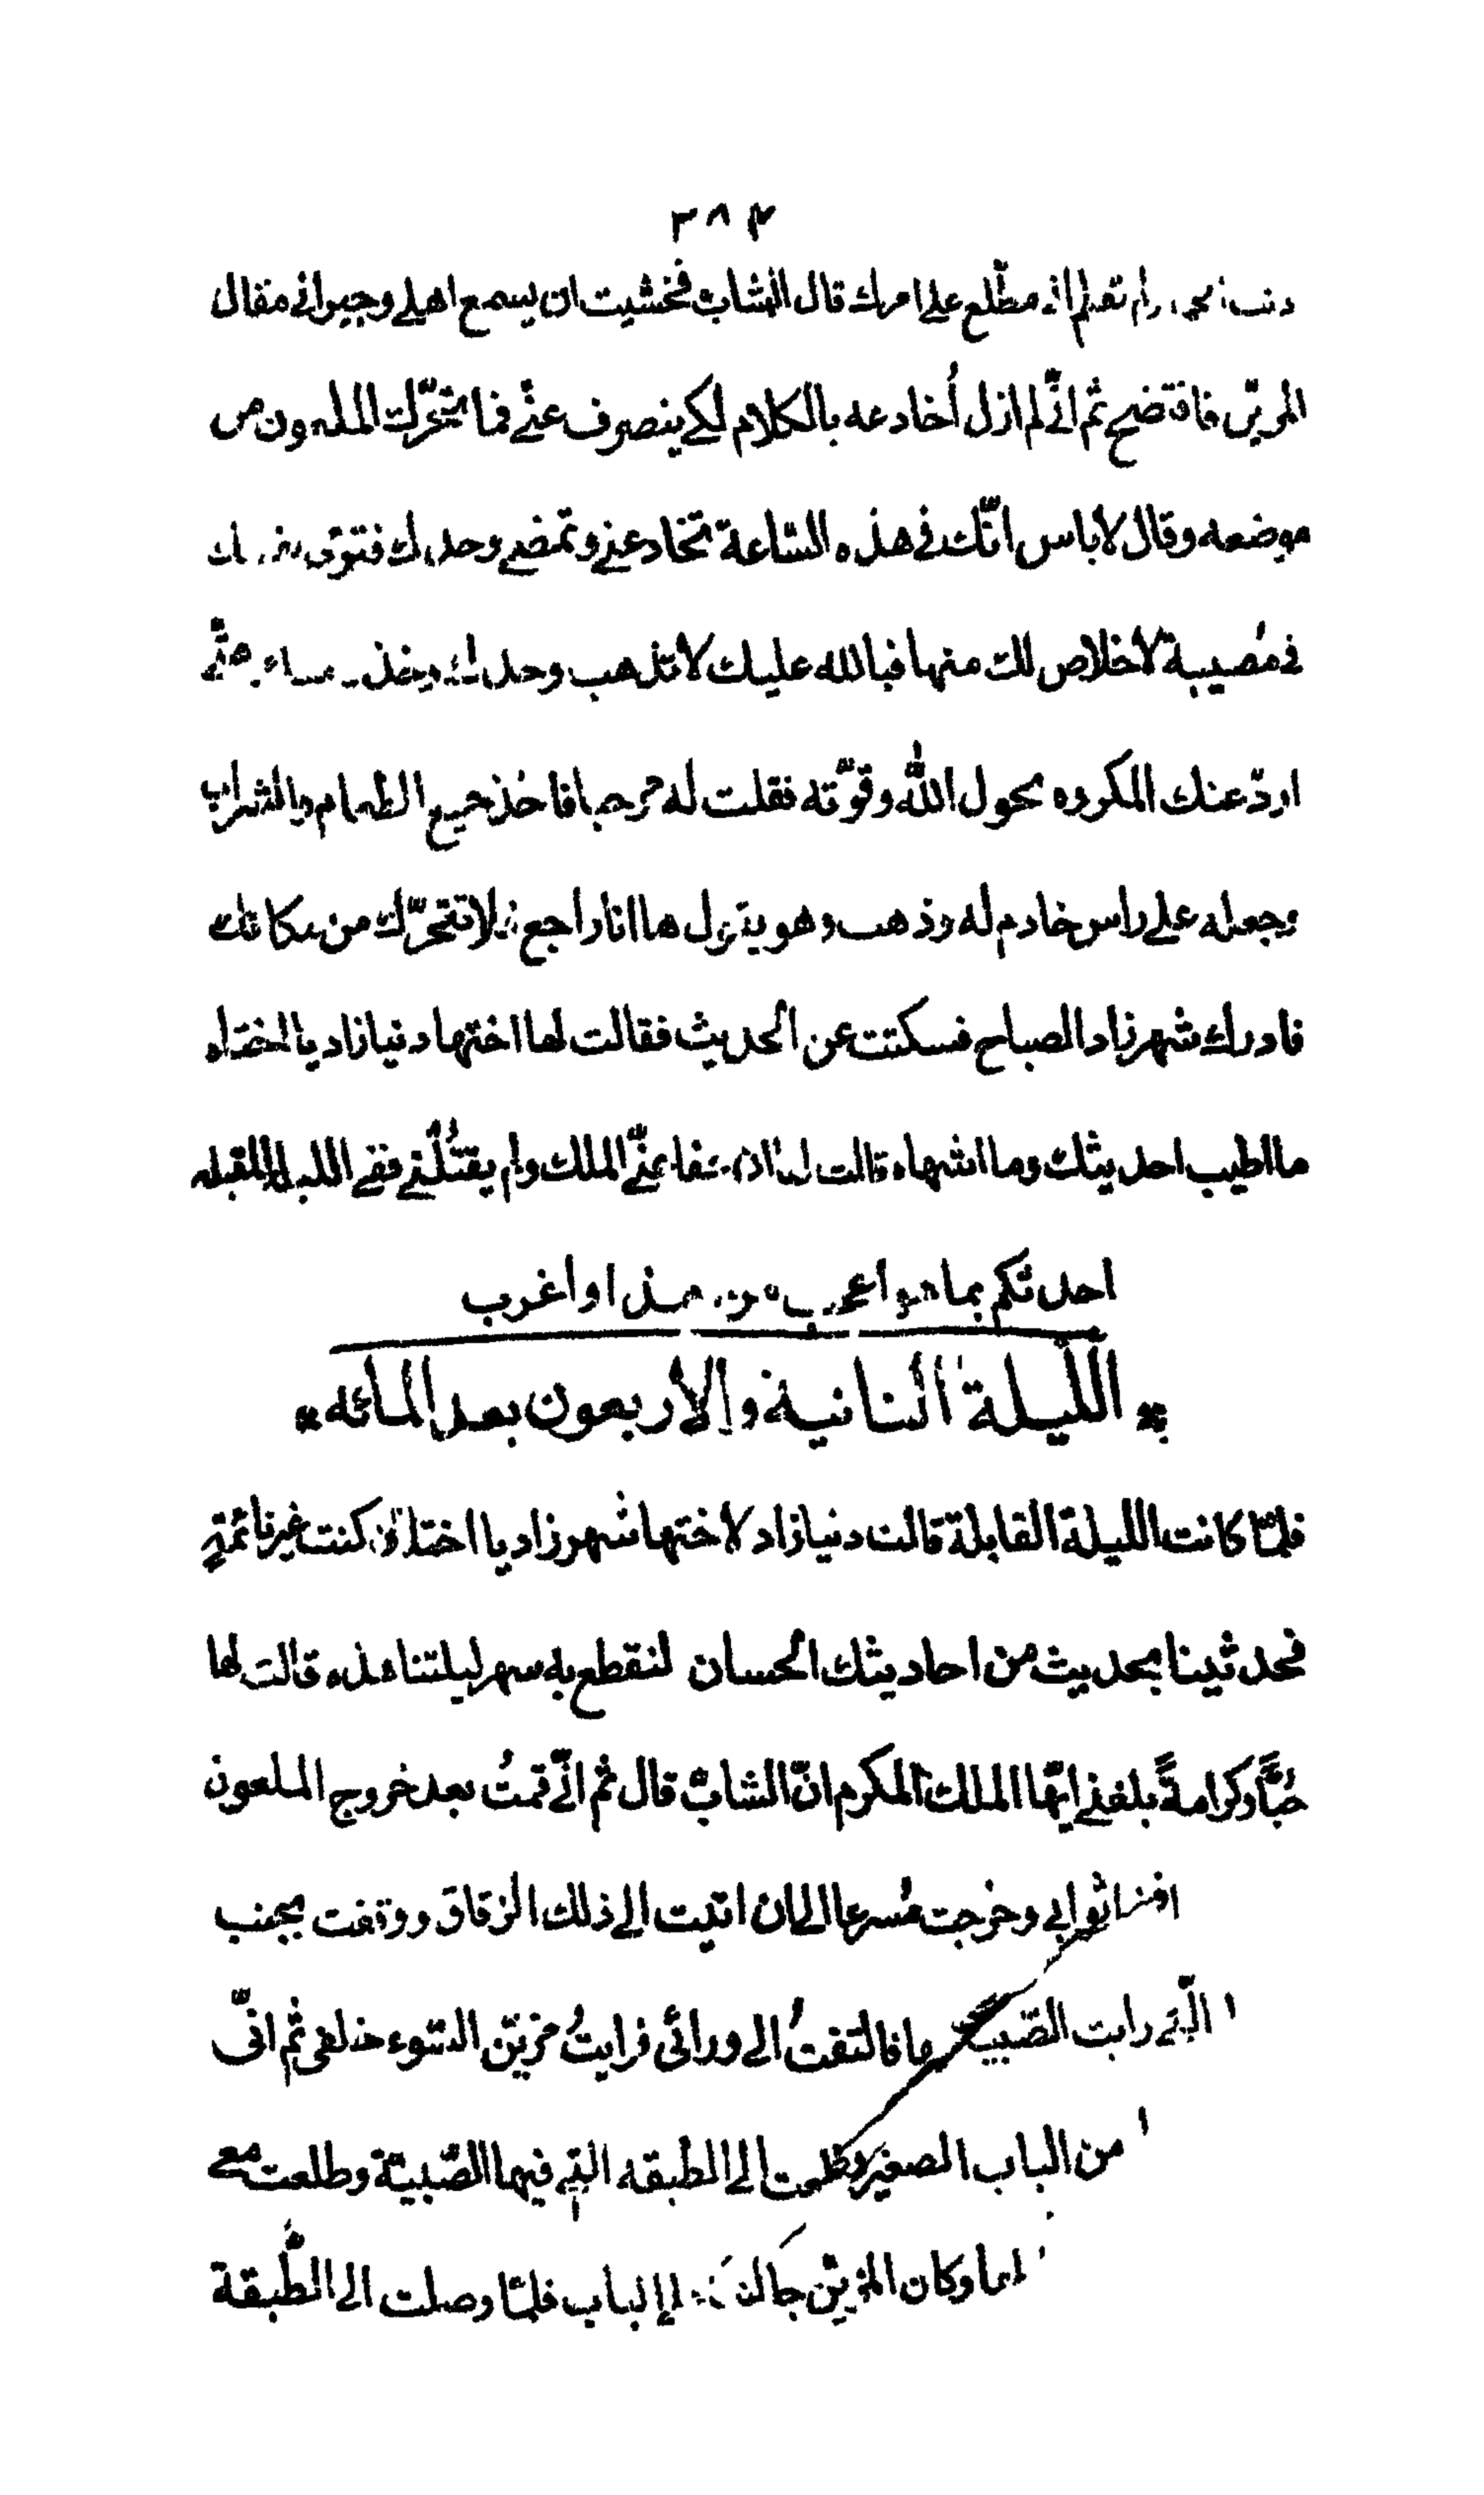 ٣٨٢
تعلم انى مطّلع على امرك قال الشاب فخشيت ان يسمع اهلى وجيرانى مقال
المزيّن فافتضح ثم انّى لم ازل أخادعه بالكلام لكى ينصرف عنّى فما تحرّك الملعون من
موضعه وقال لاباس انّك فى هذه السّاعة تخادعنى وتمضى وحدك فترمى
فى مُصيبة لاخلاص لك منها فبالله عليك لاتذهب وحدك حتّى
اردّ عنك المكروه بحول اللّه وقوّته فقلت له مرحبا فاخذ جميع الطعام والشراب
وجعله على راس خادم له وذهب وهو يقول ها انا راجع لا تتحرّك من مكانك
فادرك شهرزاد الصباح فسكتت عن الحديث فقالت لها اختها دنيازاد يا اختاه
ما اطيب احديثك وما اشهاه قالت لها ان عفا عنّى الملك ولم يقتُلنى ففى الليلة المقبله
احدثكم بما هو اعجب من هذا واغرب
الليلة الثانية والاربعون بعد المائه
فلمّا كانت الليلة القابلة قالت دنيازاد لاختها شهرزاد يا اختاه ان كنت غير نائمةٍ
فحدثينا بحديث من احاديثك الحسان لنقطع به سهر ليلتنا هذه قالت لها
حُبًّا وكرامةً بلغنى ايّها الملك المكرم انّ الشابّ قال ثم انّى قمتُ بعد خروج الملعون
اثوابى وخرجت مُسرعا الى ان اتيت الى ذلك الزقاق ووقفت بجنب
الّتى رايت الصّبية فالتفتُ الى ورائى فرايتُ مزيّن السّوء خلفى ثم انّى
من الباب الصغير وطلعت الى الطبقه التى فيها الصّبيّة وطلعت معى
وكان المزيّن الباب فلمّا وصلت الى الطّبقة